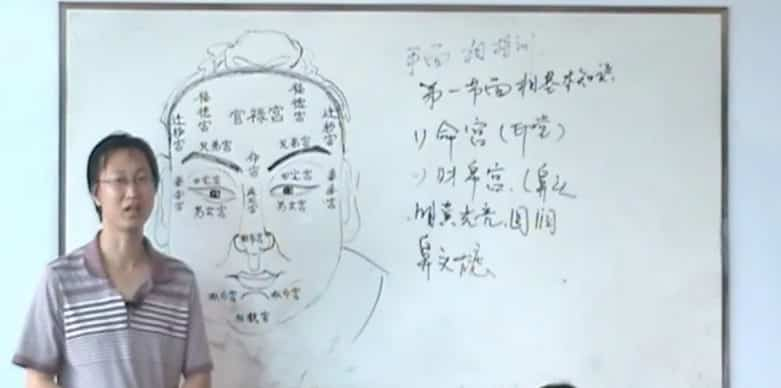 福德宫
福德宫
官禄宫
迁移宫
迁移宫
兄弟宫
兄弟宫
命宫
田宅宫
田宅宫
妻妾宫
妻妾宫
疾厄宫
男女宫
男女宫
财帛宫
奴仆宫
奴仆宫
相貌宫
第一节面相基本知识
1)命宫(印堂)
财帛宫(鼻
明黄光亮、圆润
鼻